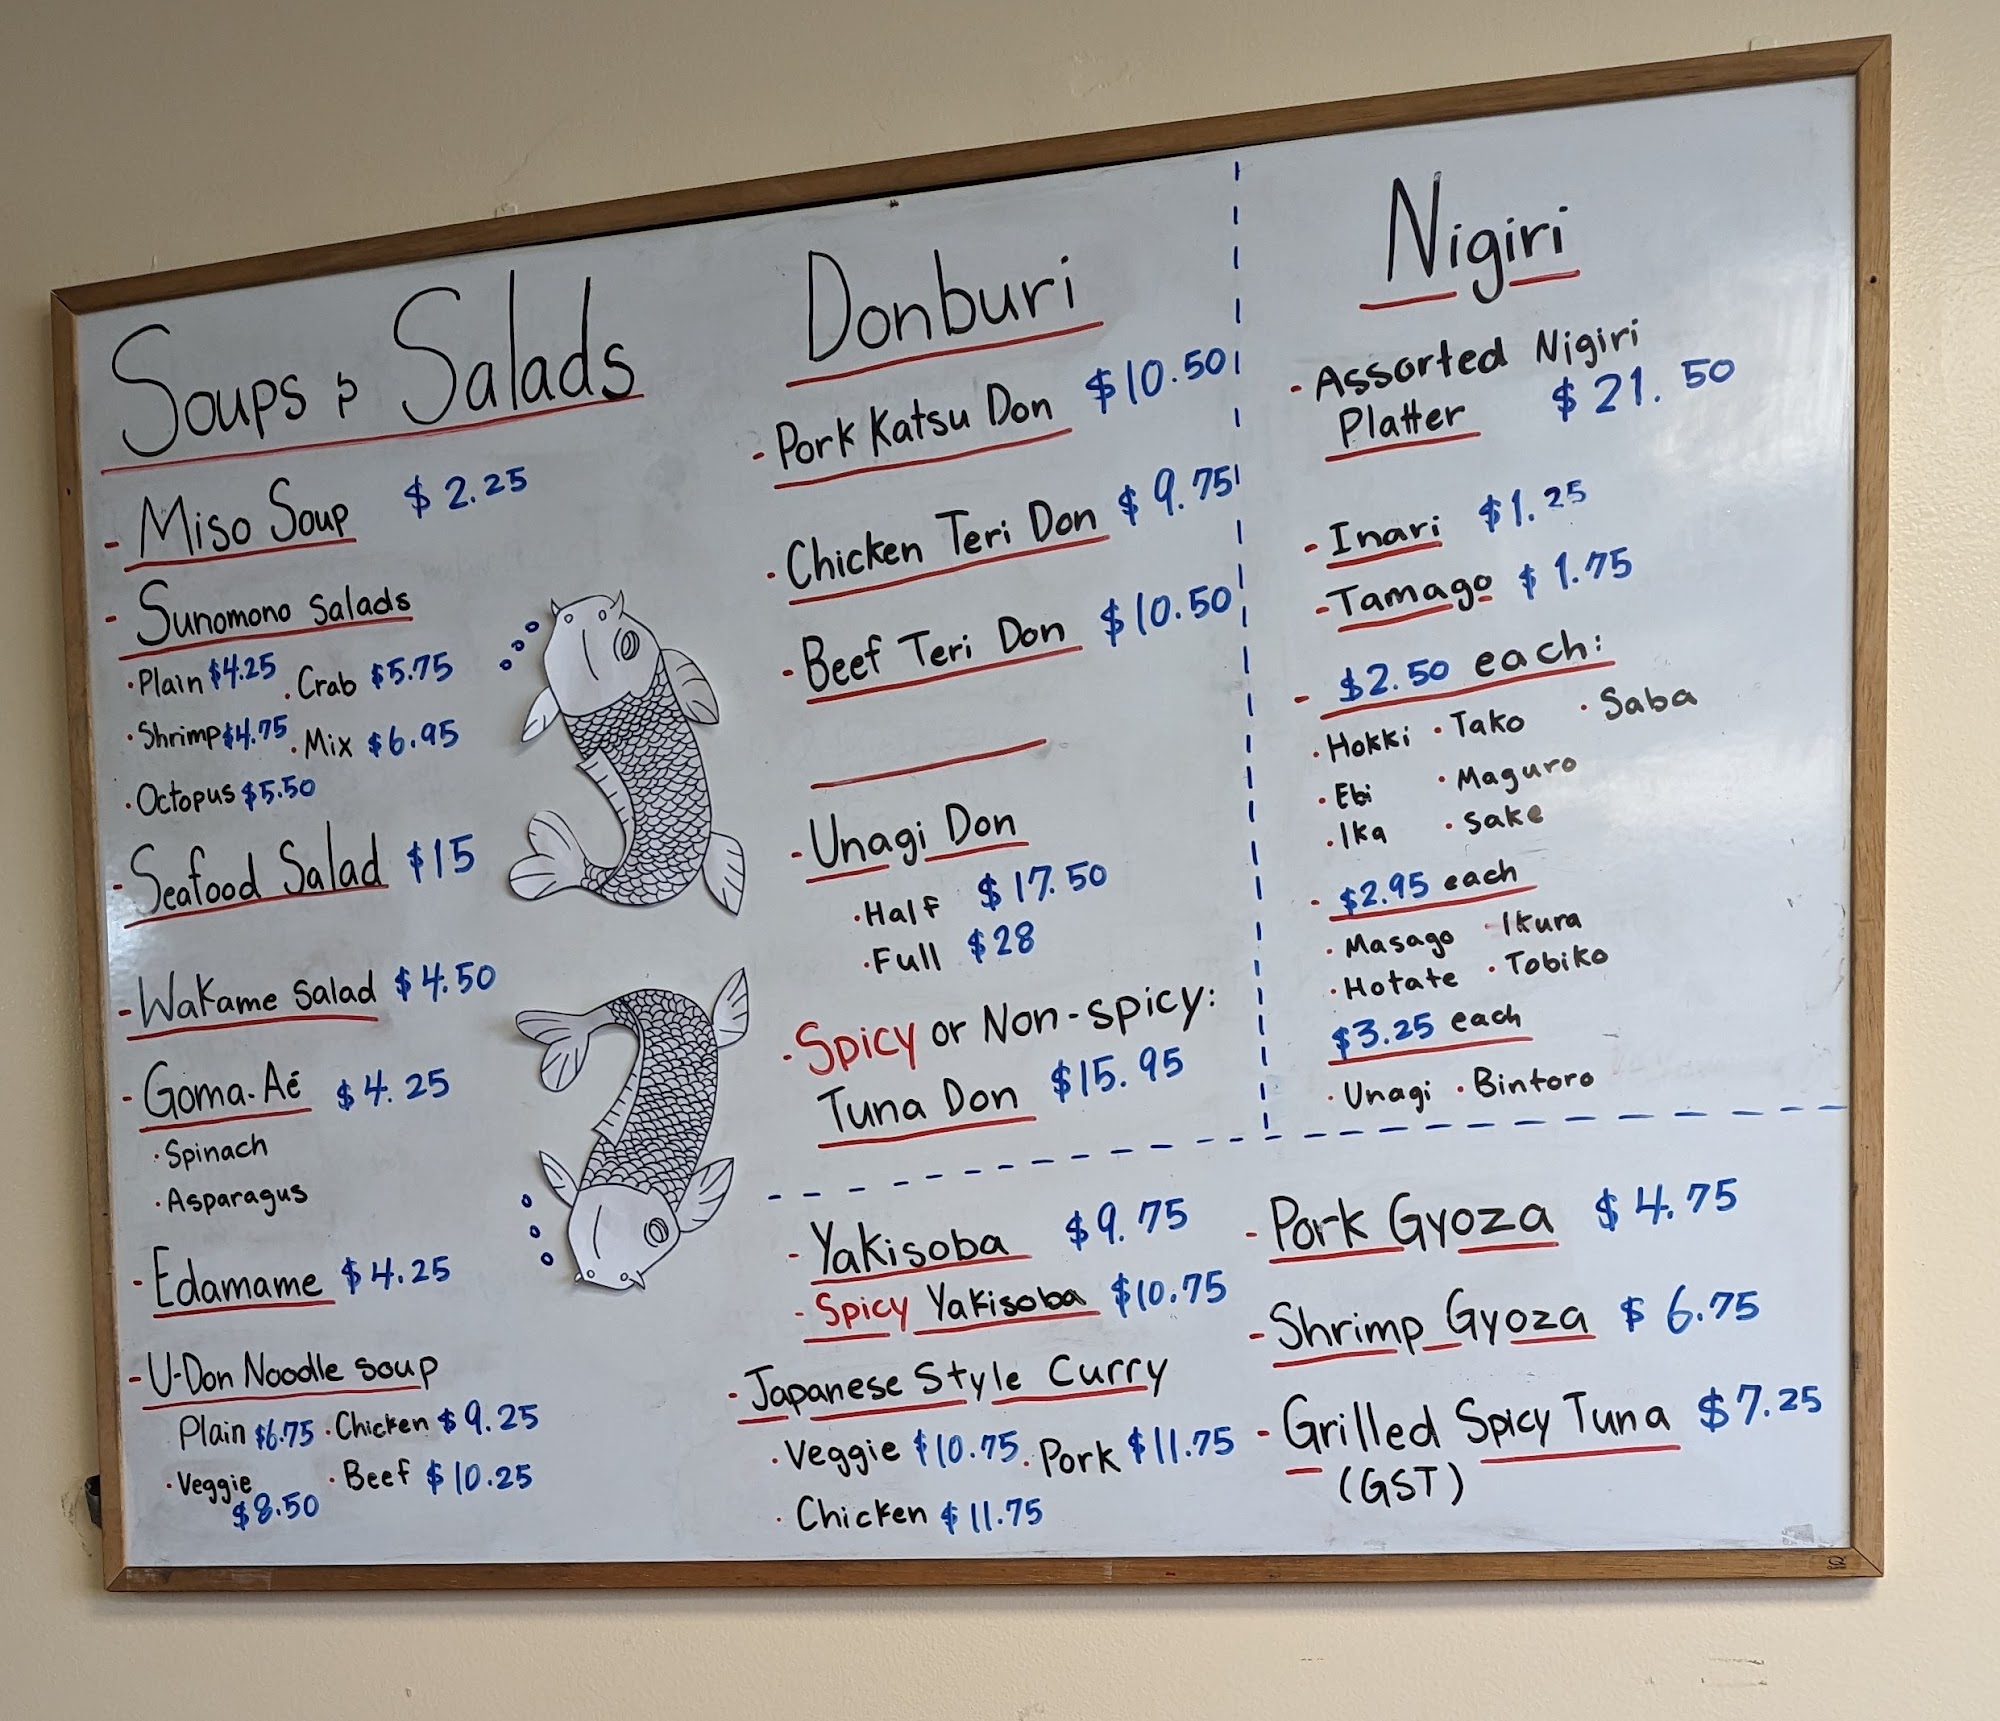 Soups & Salads
- Miso Soup $2.25
- Sunomono Salads
· Plain $4.25 · Crab $5.75
· Shrimp $4.75 · Mix $6.95
· Octopus $5.50
- Seafood Salad $15
- Wakame Salad $4.50
- Goma-Aé $4.25
· Spinach
· Asparagus
- Edamame $4.25
- U-Don Noodle Soup
Plain $6.75 · Chicken $9.25
· Veggie · Beef $10.25
$8.50
Donburi
- Pork Katsu Don $10.50
· Chicken Teri Don $9.75
- Beef Teri Don $10.50
- Unagi Don
· Half $17.50
· Full $28
· Spicy or Non-spicy:
Tuna Don $15.95
Nigiri
- Assorted Nigiri
Platter $21.50
- Inari $1.25
- Tamago $1.75
- $2.50 each:
· Hokki · Tako · Saba
· Ebi · Maguro
· Ika · Sake
- $2.95 each
· Masago · Ikura
· Hotate · Tobiko
$3.25 each
· Unagi · Bintoro
- Yakisoba $9.75
- Spicy Yakisoba $10.75
- Japanese Style Curry
· Veggie $10.75 · Pork $11.75
· Chicken $11.75
- Pork Gyoza $4.75
- Shrimp Gyoza $6.75
- Grilled Spicy Tuna $7.25
(GST)